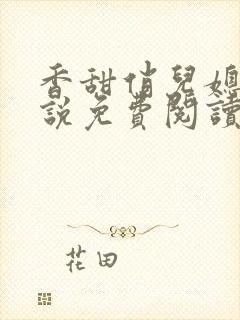 香甜俏兒媳
說免費閱讀
花田